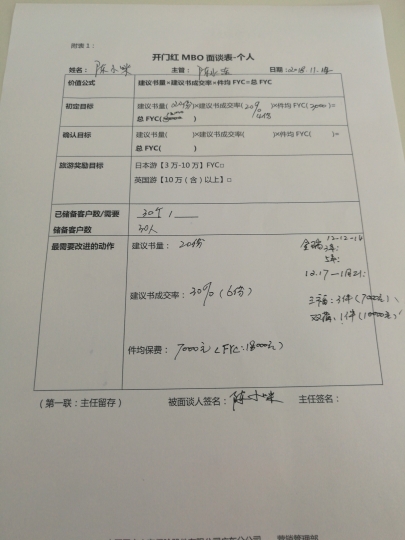 附表1：
开门红MBO面谈表-个人
姓名： 陈小咪 主管： 日期：2018.11.14
价值公式 建议书量×建议书成交率×件均FYC=总FYC
初定目标 建议书量(20份)×建议书成交率(20%)×件均FYC(3000)=
总FYC( )
确认目标 建议书量( )×建议书成交率( )×件均FYC( )=
总FYC( )
旅游奖励目标 日本游【3万-10万】FYC□
英国游【10万（含）以上】□
已储备客户数/需要 30个 / ____
储备客户数 30人
最需要改进的动作 建议书量： 20份
12-12-14
12.17—1月21：
建议书成交率：30%（6份）
三福：3件（7000元）、
双福：1件（10000元）
件均保费： 7000元（FYC:18000元）
（第一联：主任留存） 被面谈人签名：陈小咪 主任签名：
营销管理部